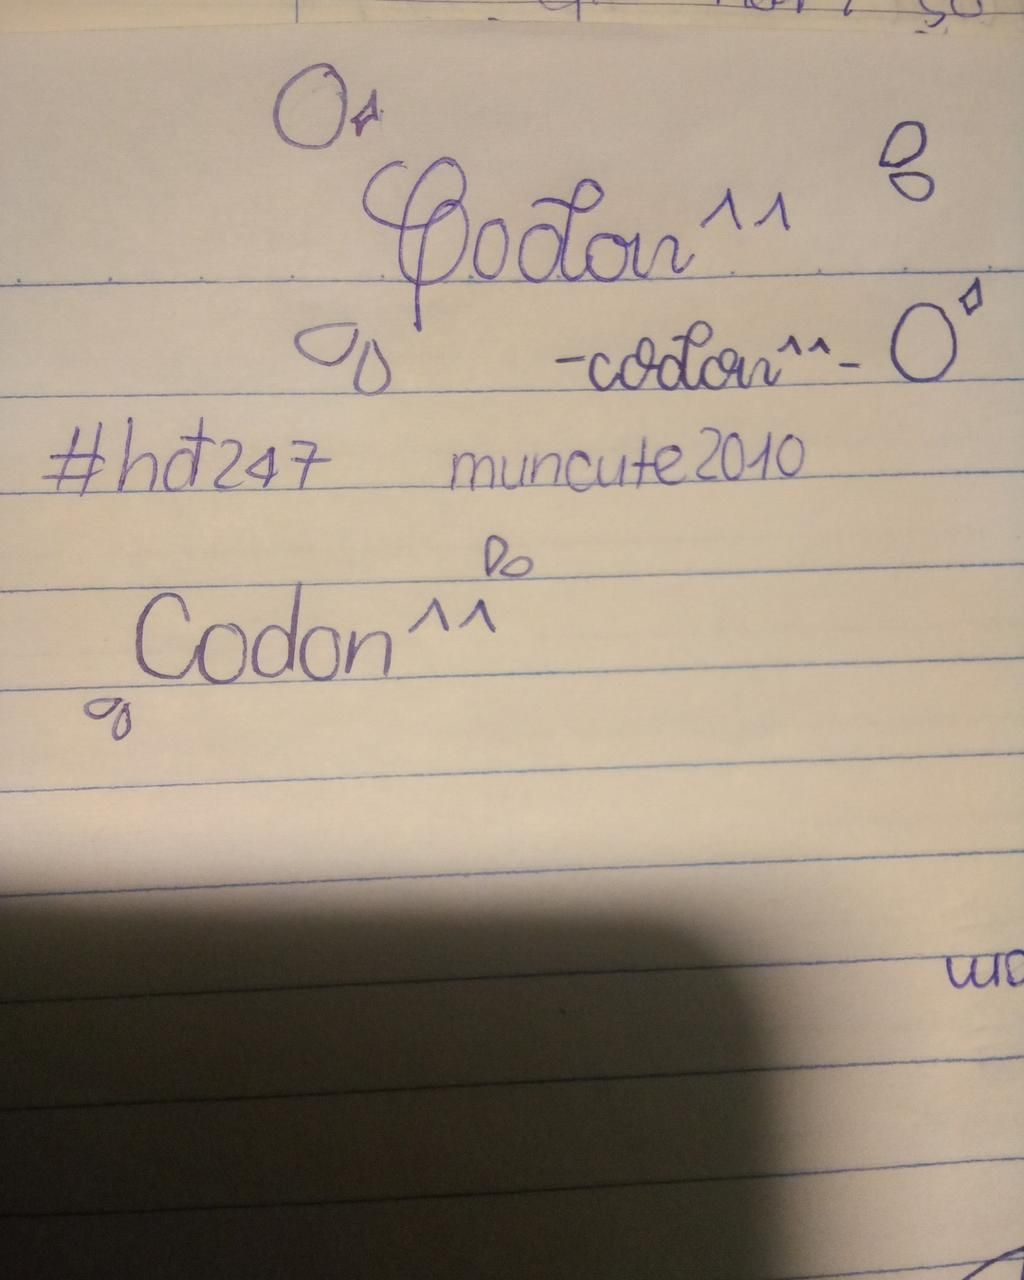 Codon^^
-codon^^-
#hđ247 muncute2010
Codon^^